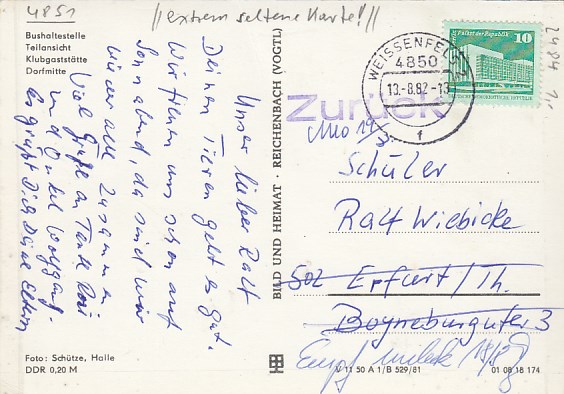 4851
//extrem seltene Karte!//
Bushaltestelle
Teilansicht
Klubgaststätte
Dorfmitte
Unser lieber Ralf
Deinen Tieren geht es gut.
Wir freuen uns schon auf
Sonnabend, da sind wir
wieder alle zusammen
Viel Grüße an Tante Rosi
und Onkel Wolfgang.
Es grüßt Dich Deine Eltern
Foto: Schütze, Halle
DDR 0,20 M
BILD UND HEIMAT · REICHENBACH (VOGTL)
WEISSENFELS
4850
13.-8.82-13
f
10
Palast der Republik
Zurück
Schüler
Ralf Wiebicke
502 Erfurt/Th.
Boyneburgufer 3
V 11 50 A 1/B 529/81
01 08 18 174